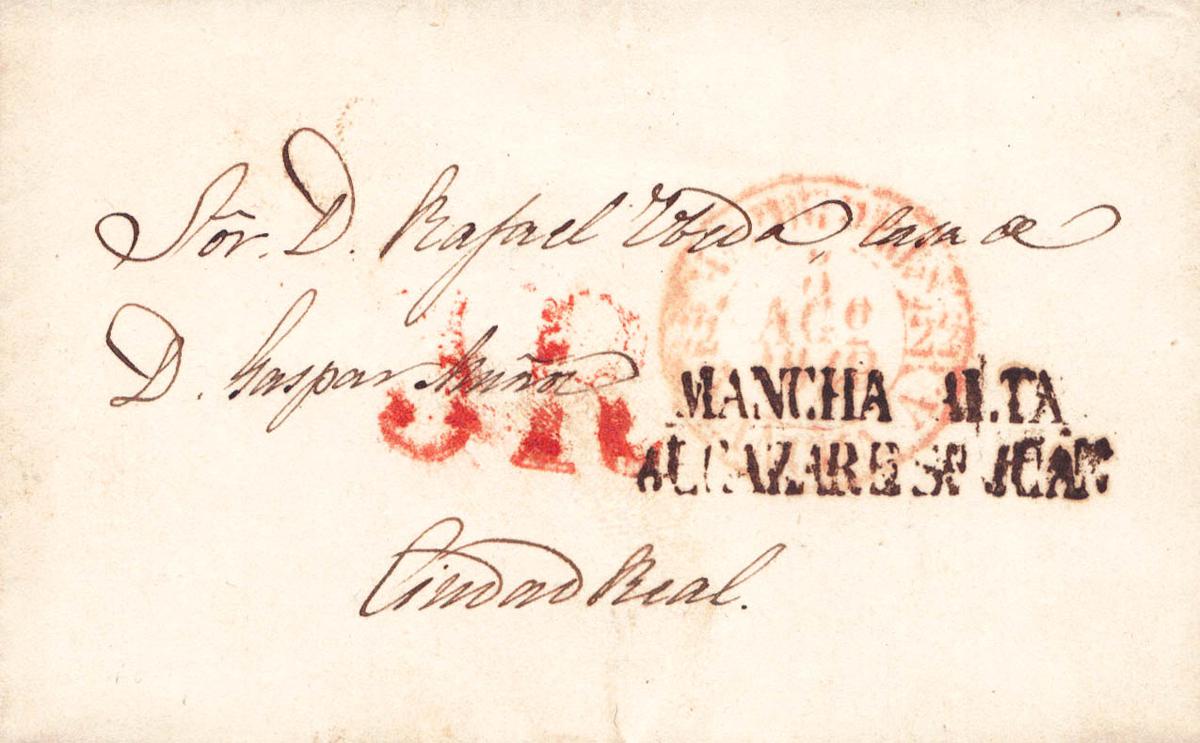 Sôr. D. Rafael Vbeda, casa de
D. Gaspar Muñoz
3R
AGO
MANCHA ALTA
ALCAZAR DE Sn JUAN
Ciudad Real.